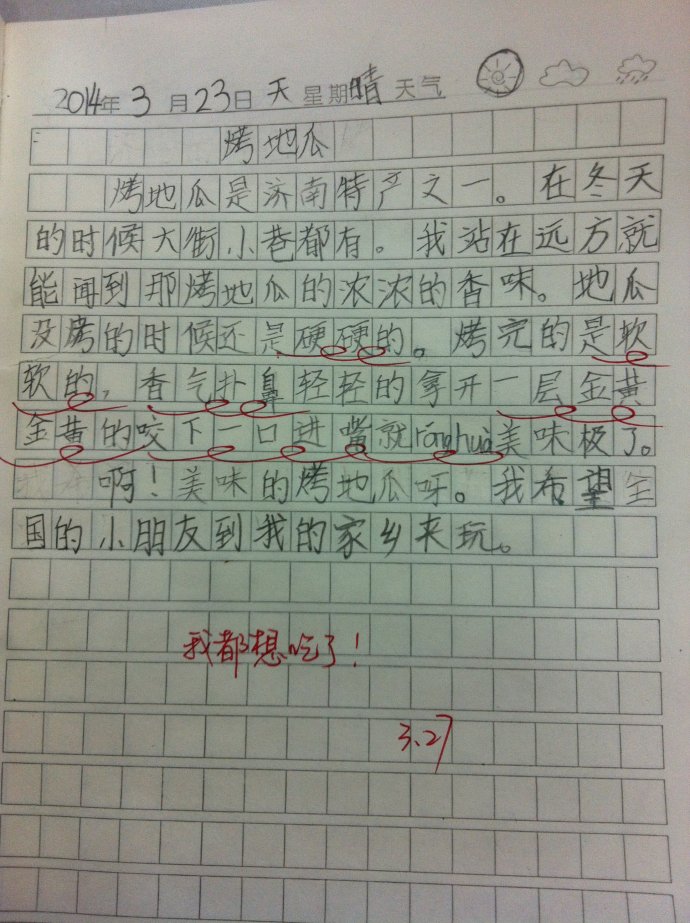 2014年3月23日 天 星期晴天气
烤地瓜
烤地瓜是济南特产之一。在冬天
的时候大街小巷都有。我站在远方就
能闻到那烤地瓜的浓浓的香味。地瓜
没烤的时候还是硬硬的。烤完的是软
软的，香气扑鼻轻轻的拿开一层金黄
金黄的咬下一口进嘴就rónghuà美味极了。
啊！美味的烤地瓜呀。我希望全
国的小朋友到我的家乡来玩。
我都想吃了！
3.27